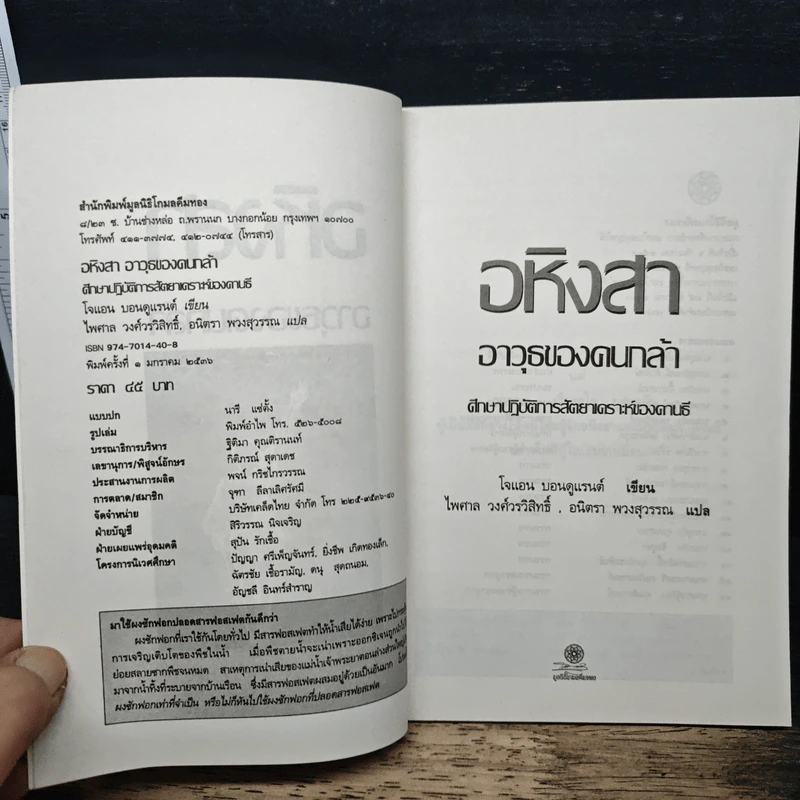 สำนักพิมพ์มูลนิธิโกมลคีมทอง
๘/๒๓ ซ. บ้านช่างหล่อ ถ.พรานนก บางกอกน้อย กรุงเทพฯ ๑๐๗๐๐
โทรศัพท์ ๔๑๑-๓๗๗๔, ๔๑๒-๐๗๔๔ (โทรสาร)
อหิงสา อาวุธของคนกล้า
ศึกษาปฏิบัติการสัตยาเคราะห์ของคานธี
โจแอน บอนดูแรนต์ เขียน
ไพศาล วงศ์วรวิสิทธิ์, อนิตรา พวงสุวรรณ แปล
ISBN 974-7014-40-8
พิมพ์ครั้งที่ ๑ มกราคม ๒๕๓๖
ราคา ๔๕ บาท
แบบปก นารี แซ่ตั้ง
รูปเล่ม พิมพ์อำไพ โทร. ๕๒๖-๕๐๐๘
บรรณาธิการบริหาร ฐิติมา คุณติรานนท์
เลขานุการ/พิสูจน์อักษร กิติภรณ์ สุดาเดช
ประสานงานการผลิต พจน์ กริชไกรวรรณ
การตลาด/สมาชิก จุฑา ลีลาเลิศรัศมี
จัดจำหน่าย บริษัทเคล็ดไทย จำกัด โทร ๒๒๕-๙๕๓๖-๔๐
ฝ่ายบัญชี สิริวรรณ นิจเจริญ
ฝ่ายเผยแพร่อุดมคติ สุปัน รักเชื้อ
โครงการนิเวศศึกษา ปัญญา ศรีเพ็ญจันทร์, ยิ่งชีพ เกิดทองเล็ก,
ฉัตรชัย เชื้อรามัญ, ดนุ สุดถนอม,
อัญชลี อินทร์สำราญ
มาใช้ผงซักฟอกปลอดสารฟอสเฟตกันดีกว่า
ผงซักฟอกที่เราใช้กันโดยทั่วไป มีสารฟอสเฟตทำให้น้ำเสียได้ง่าย
การเจริญเติบโตของพืชในน้ำ เมื่อพืชตายน้ำจะเน่าเพราะออกซิเจนถูกนำไป
ย่อยสลายซากพืชจนหมด สาเหตุการเน่าเสียของแม่น้ำเจ้าพระยาตอนล่างส่วนใหญ่
มาจากน้ำทิ้งที่ระบายจากบ้านเรือน ซึ่งมีสารฟอสเฟตผสมอยู่ด้วยเป็นอันมาก
ผงซักฟอกเท่าที่จำเป็น หรือไม่ก็หันไปใช้ผงซักฟอกที่ปลอดสารฟอสเฟต
อหิงสา
อาวุธของคนกล้า
ศึกษาปฏิบัติการสัตยาเคราะห์ของคานธี
โจแอน บอนดูแรนต์ เขียน
ไพศาล วงศ์วรวิสิทธิ์ , อนิตรา พวงสุวรรณ แปล
มูลนิธิโกมลคีมทอง